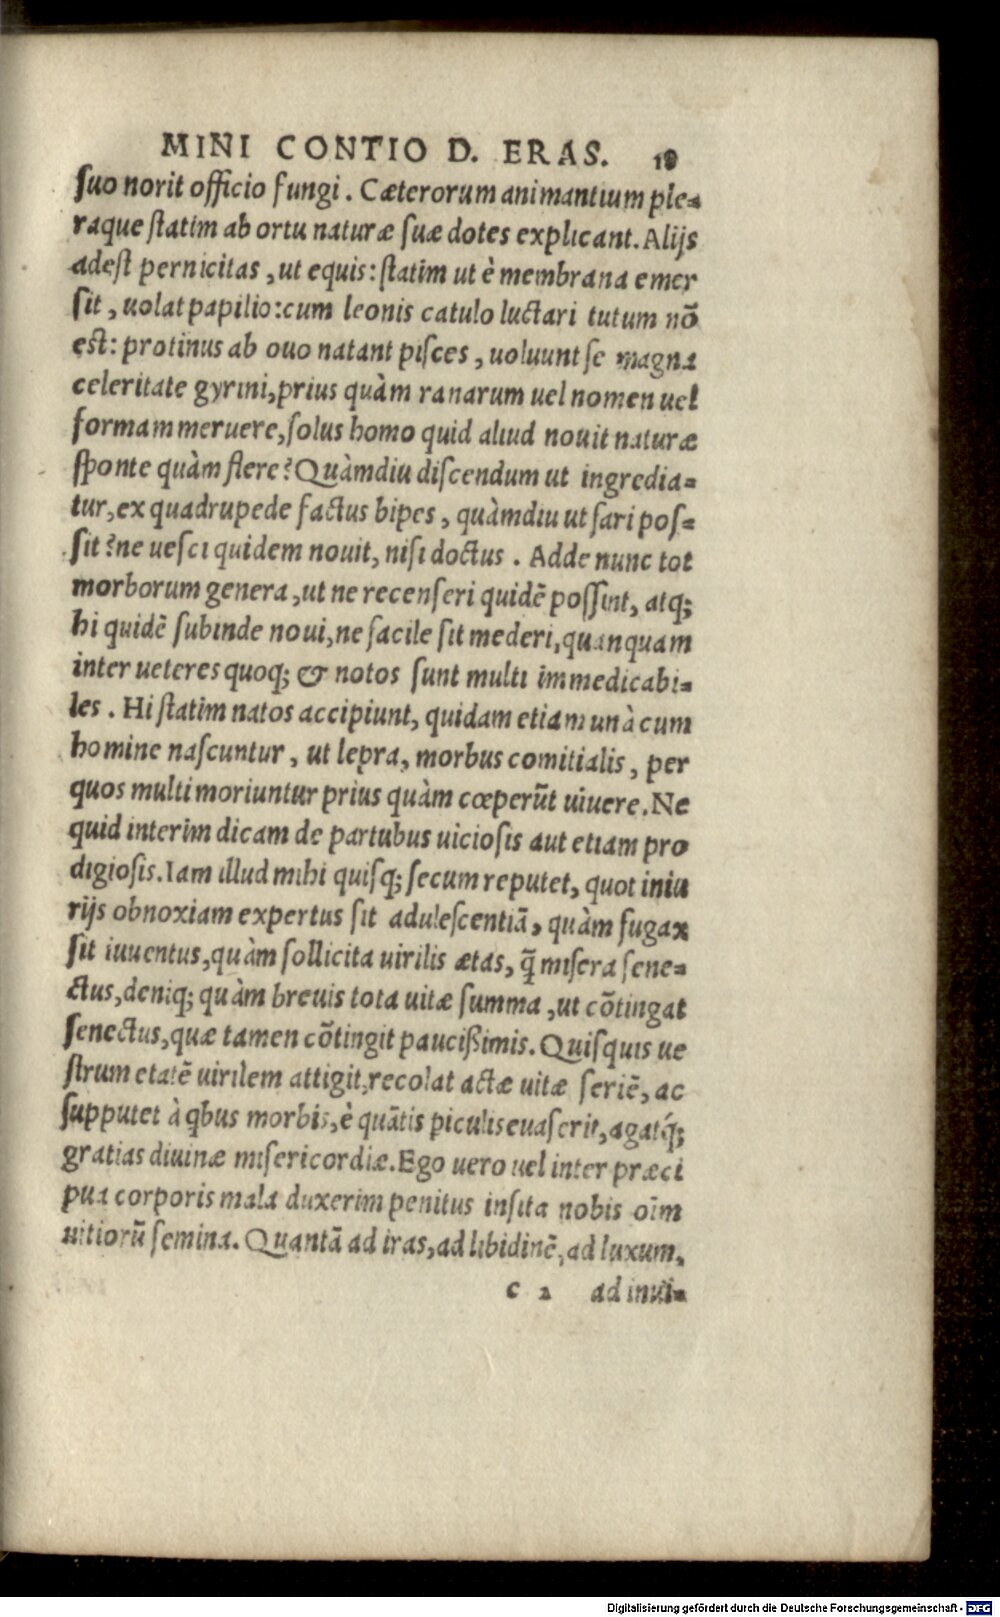 MINI CONTIO D. ERAS. 18
ſuo norit officio fungi. Cæterorum animantium ple-
raque ſtatim ab ortu naturæ ſuæ dotes explicant. Alijs
adeſt pernicitas, ut equis: ſtatim ut è membrana emer
ſit, uolat papilio: cum leonis catulo luctari tutum nō
est: protinus ab ouo natant piſces, uoluunt ſe magna
celeritate gyrini, prius quàm ranarum uel nomen uel
formam meruere, ſolus homo quid aliud nouit naturæ
ſponte quàm flere? Quàmdiu diſcendum ut ingredia-
tur, ex quadrupede factus bipes, quàmdiu ut fari poſ-
ſit? ne ueſci quidem nouit, niſi doctus. Adde nunc tot
morborum genera, ut ne recenſeri quidē poſſint, atq;
hi quidē ſubinde noui, ne facile ſit mederi, quanquam
inter ueteres quoq; & notos ſunt multi immedicabi-
les. Hi ſtatim natos accipiunt, quidam etiam unà cum
homine naſcuntur, ut lepra, morbus comitialis, per
quos multi moriuntur prius quàm cœperūt uiuere. Ne
quid interim dicam de partubus uicioſis aut etiam pro
digioſis. Iam illud mihi quiſq; ſecum reputet, quot iniu
rijs obnoxiam expertus ſit aduleſcentiā, quàm fugax
ſit iuuentus, quàm ſollicita uirilis ætas, q̄ miſera ſene-
ctus, deniq; quàm breuis tota uitæ ſumma, ut cōtingat
ſenectus, quæ tamen cōtingit paucißimis. Quiſquis ue
ſtrum etatē uirilem attigit, recolat actæ uitæ ſeriē, ac
ſupputet à qbus morbis, è quātis piculis euaſerit, agatq́;
gratias diuinæ miſericordiæ. Ego uero uel inter præci
pua corporis mala duxerim penitus inſita nobis oīm
uitiorū ſemina. Quantā ad iras, ad libidinē, ad luxum,
c 2 ad inui-
Digitalisierung gefördert durch die Deutsche Forschungsgemeinschaft - DFG